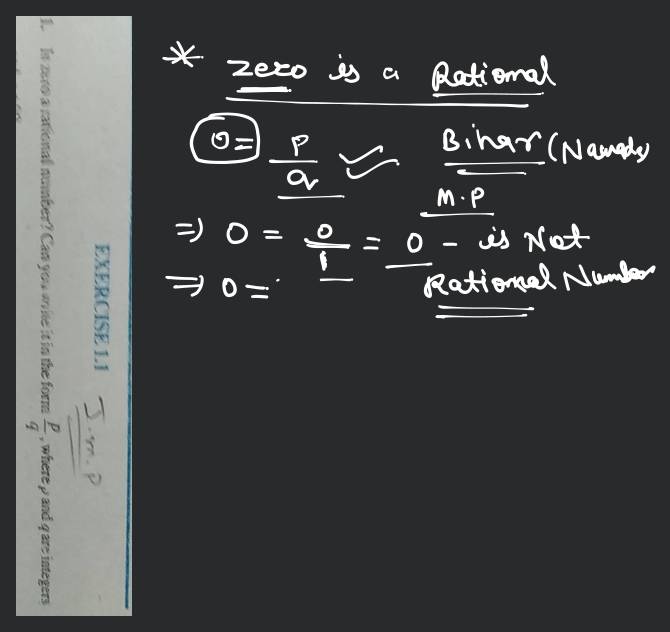 EXERCISE 1.1
I.m.p
1. Is zero a rational number? Can you write it in the form p/q, where p and q are integers
* zero is a Rational
0 = p/q Bihar (Nawada)
M.P
⇒ 0 = 0/1 = 0 - is Not
⇒ 0 = Rational Number